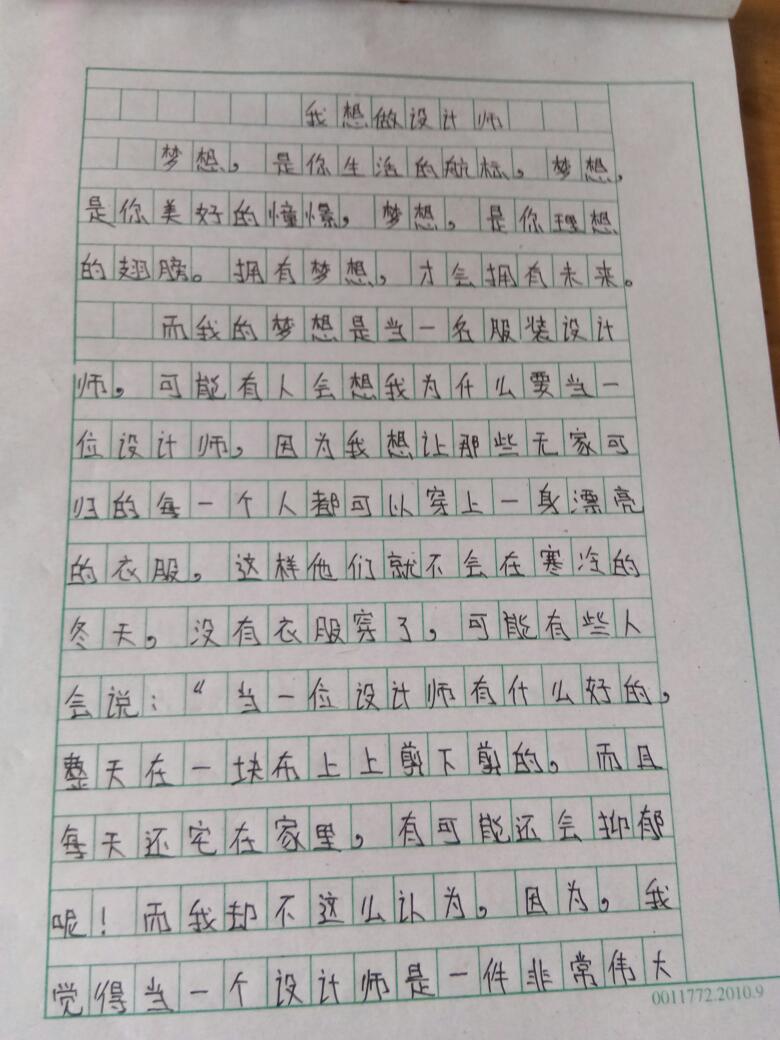 我想做设计师
梦想，是你生活的航标，梦想，
是你美好的憧憬，梦想，是你理想
的翅膀。拥有梦想，才会拥有未来。
而我的梦想是当一名服装设计
师。可能有人会想我为什么要当一
位设计师，因为我想让那些无家可
归的每一个人都可以穿上一身漂亮
的衣服。这样他们就不会在寒冷的
冬天，没有衣服穿了，可能有些人
会说：“当一位设计师有什么好的，
整天在一块布上上剪下剪的。而且
每天还宅在家里，有可能还会抑郁
呢！而我却不这么认为。因为，我
觉得当一个设计师是一件非常伟大
0011772.2010.9